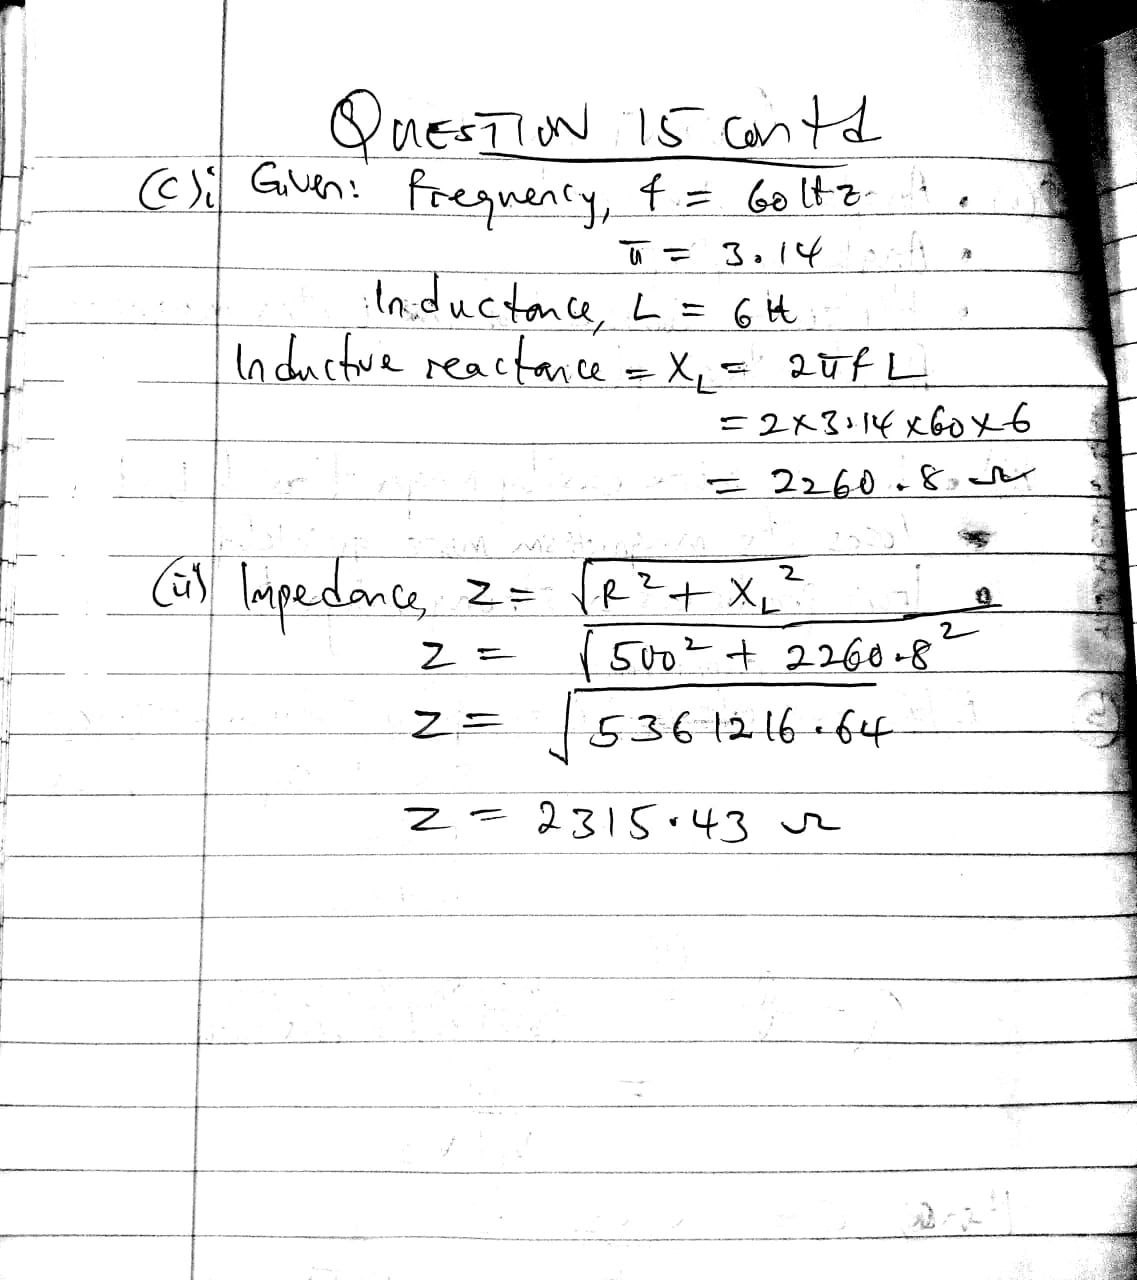 QUESTION 15 contd
(c)i Given: frequency, f = 60Hz
π = 3.14
Inductance, L = 6H
Inductive reactance = X_L = 2πfL
= 2×3.14×60×6
= 2260.8 Ω
(ii) Impedance, Z = √R² + X_L²
Z = √500² + 2260.8²
Z = √5361216.64
Z = 2315.43 Ω